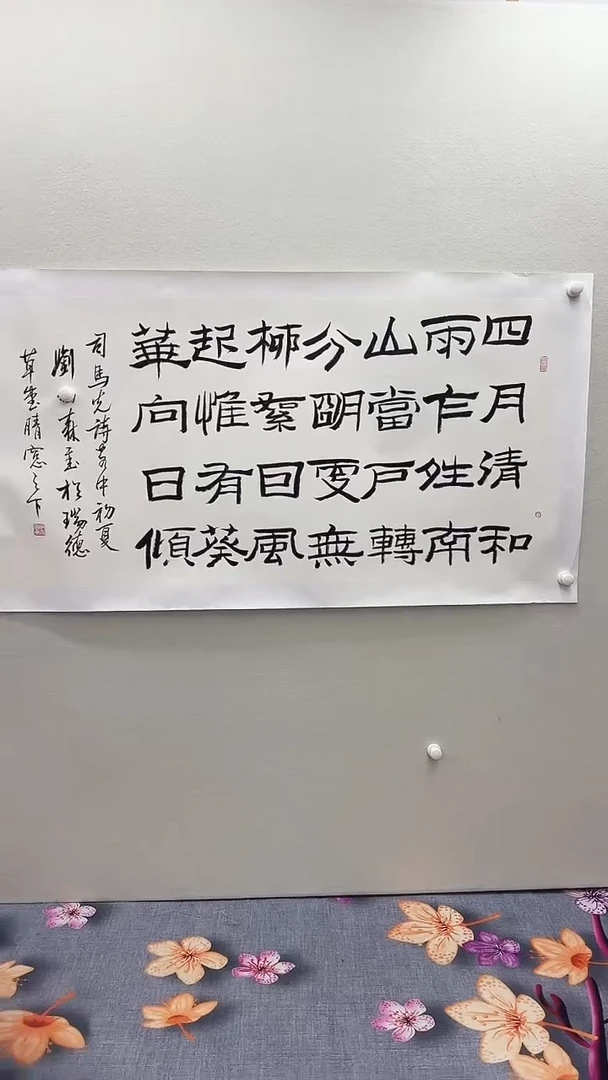 四月清和
雨乍姓南
山當戶轉
分朙更無
柳絮囙風
起惟有葵
華向日傾
司馬光詩客中初夏
劉森書於瑞德
草堂晴窓之下